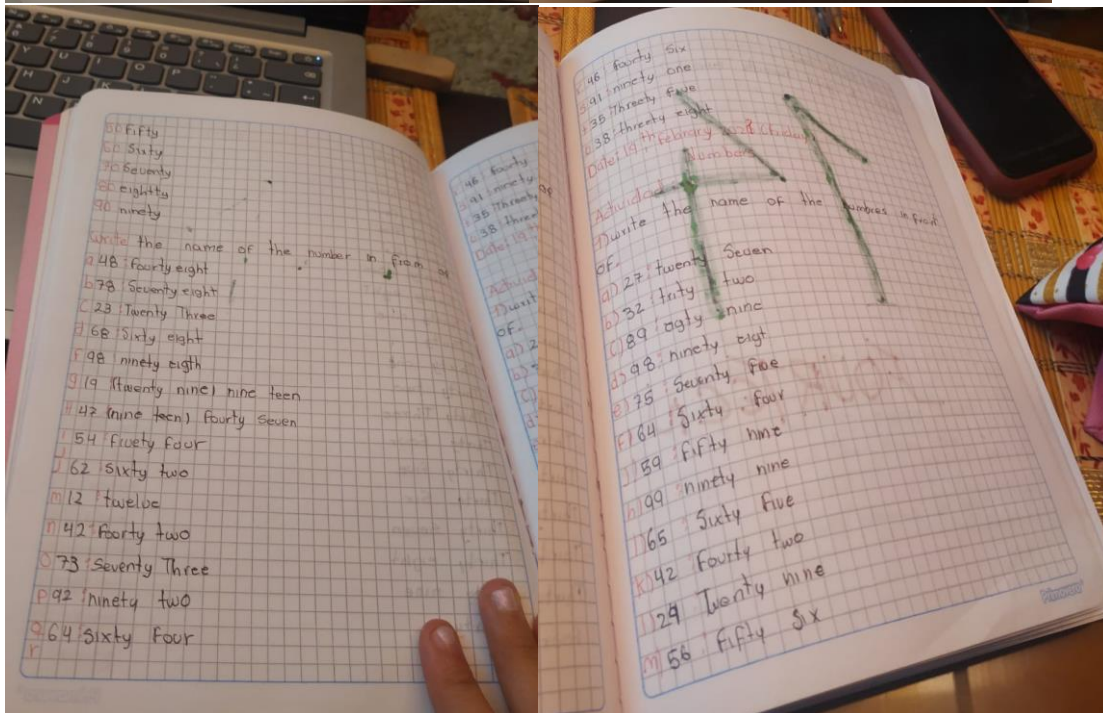 50 Fifty
60 Sixty
70 Seventy
80 eightty
90 ninety
write the name of the number in from of
a 48 : fourty eight
b 78 : Seventy eight
C 23 : Twenty Three
d 68 : Sixty eight
F 98 ninety eigth
g 19 (twenty nine) nine teen
H 47 (nine teen) fourty seven
i 54 fivety four
J 62 Sixty two
m 12 twelve
n 42 : Foorty two
O 73 : Seventy Three
P 92 : ninety two
Q 64 : Sixty four
r
46 fourty
91 : ninety
35 Three
38 three
Date: 19 th
Activid
1) writ
OF.
a) 2
46 : fourty Six
91 : ninety one
35 : Threety five
38 : threety eight
Date: 19 th Febrary (Friday)
Numbers
Actividad
1) write the name of the numbres in fron
OF.
a) 27 : twenty Seven
b) 32 : trity two
C) 89 : ogty nine
d) 98 : ninety eigt
e) 75 Seventy five
F) 64 Sixty four
59 : fifty nine
h) 99 : ninety nine
65 Sixty Five
K) 42 Fourty two
l) 29 Twenty nine
m) 56 Fifty Six